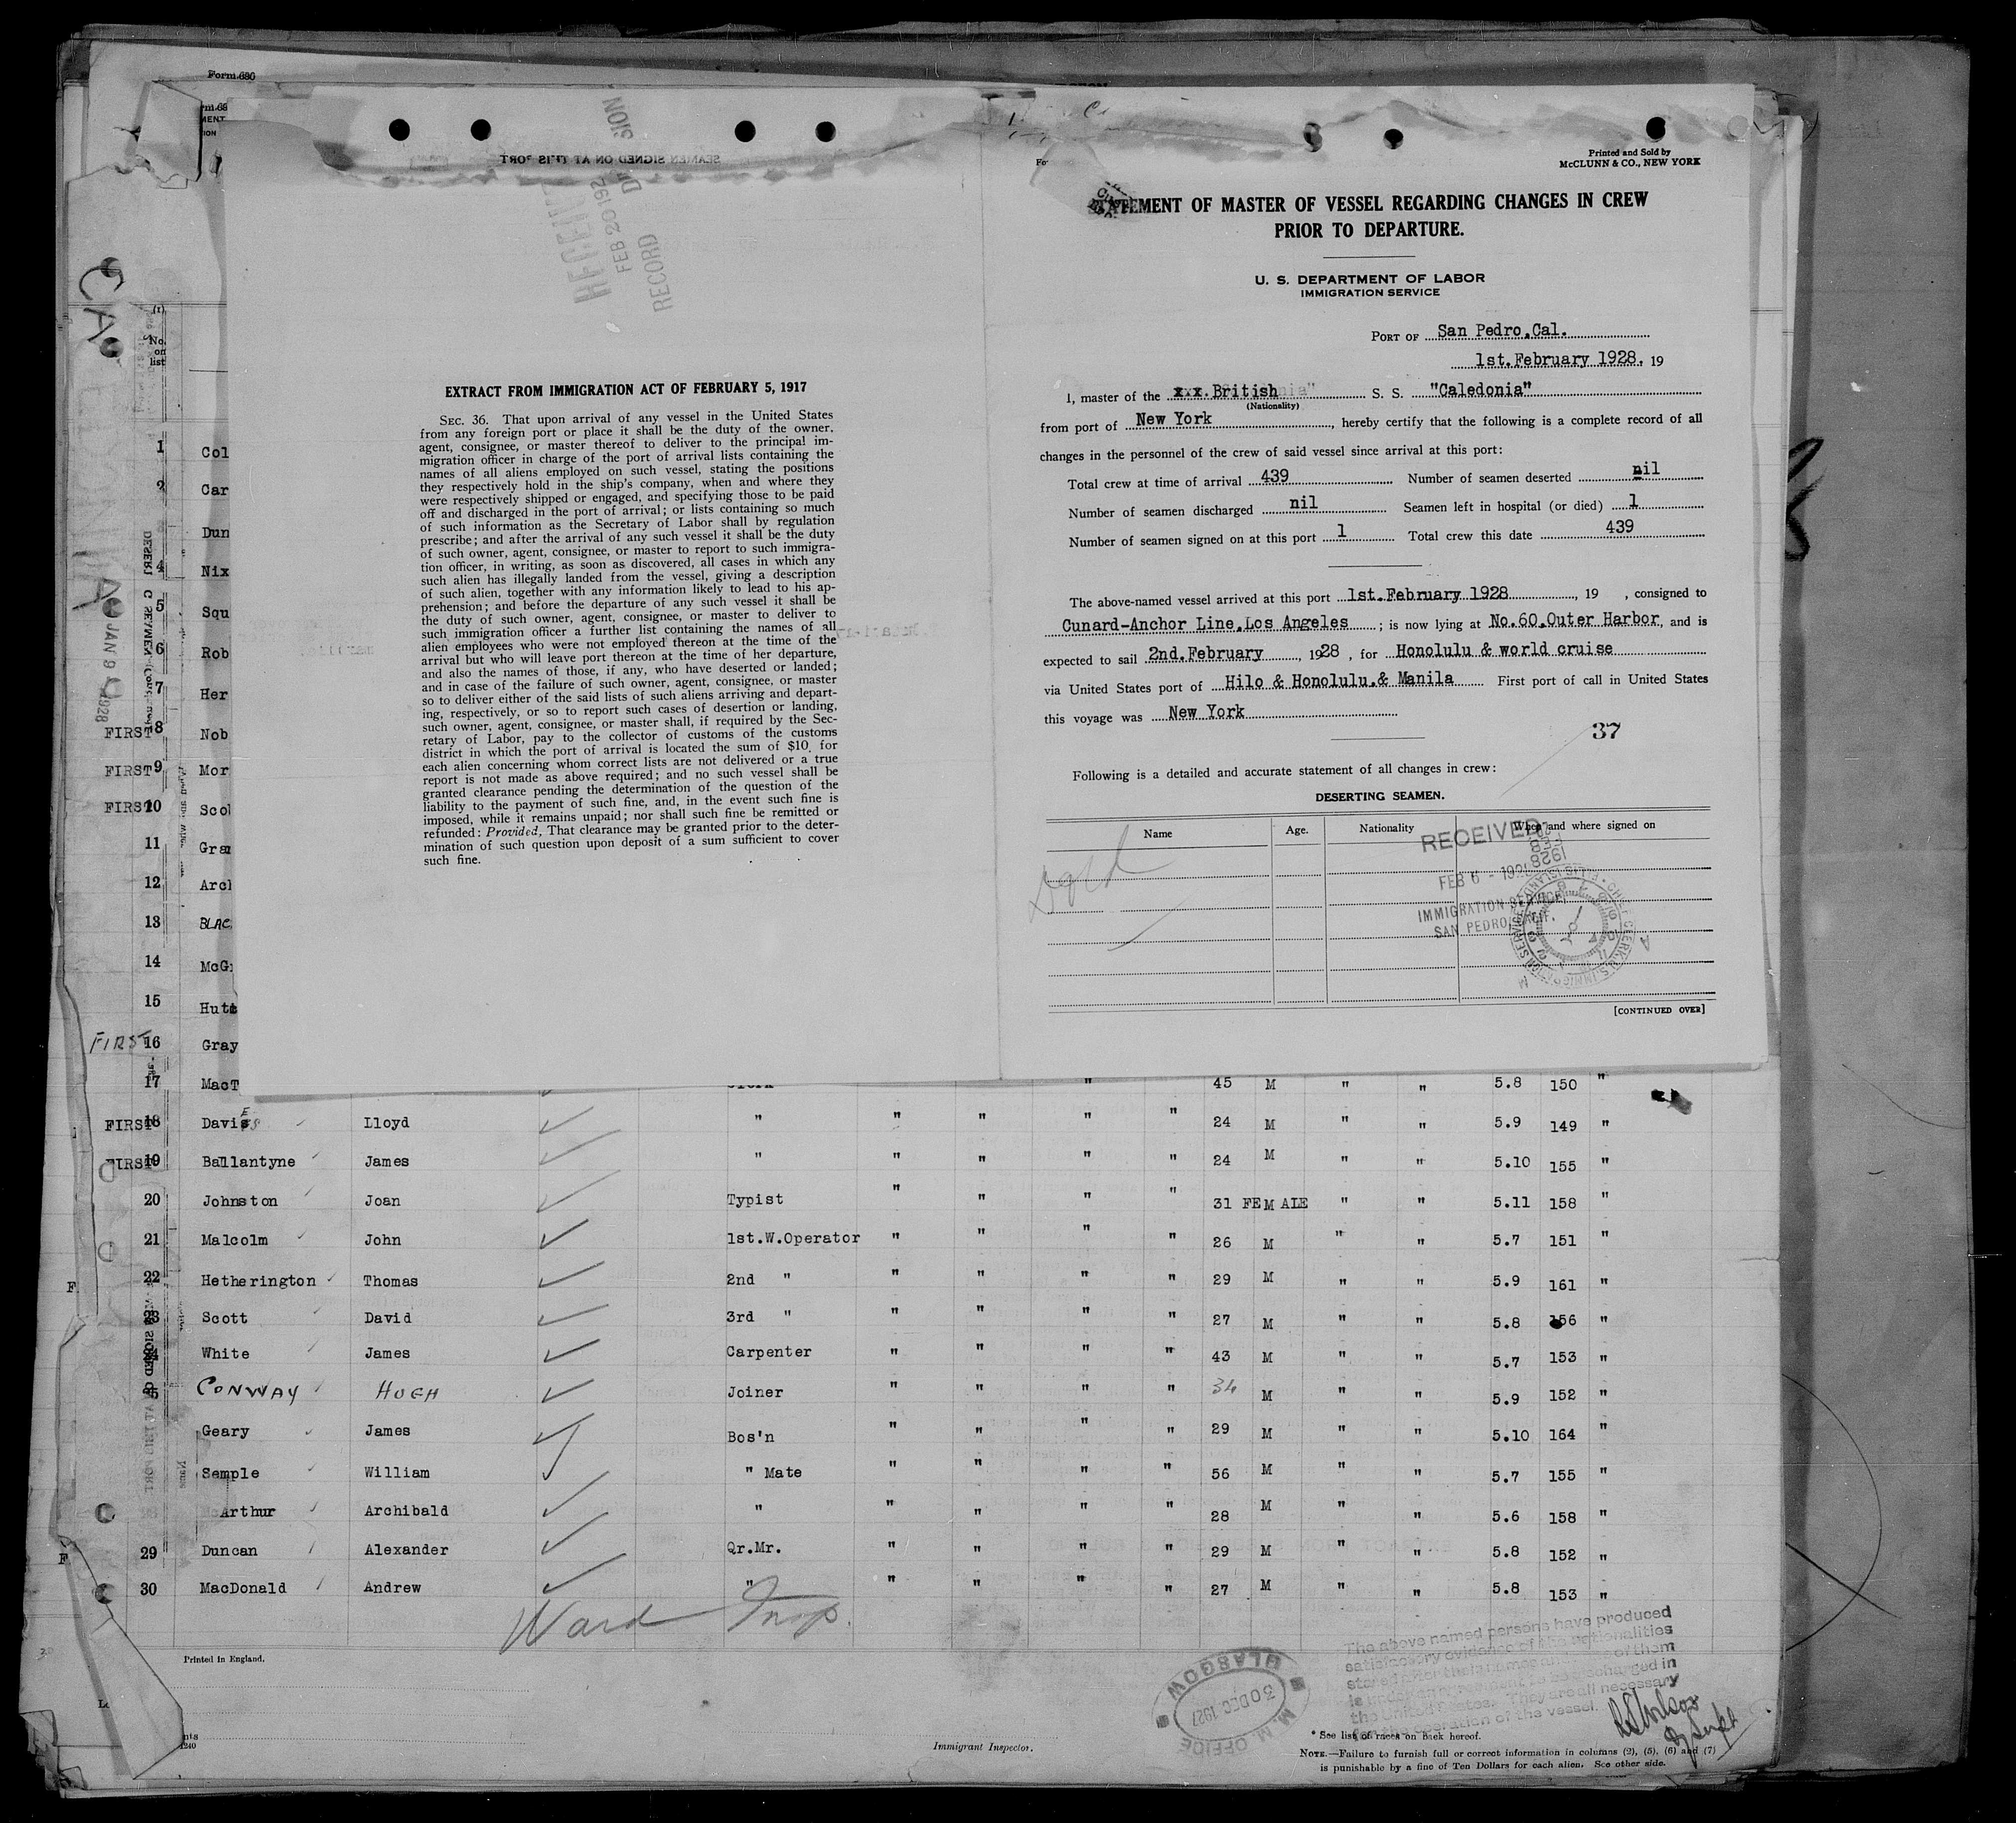 Form 686
SEAMEN SIGNED ON AT THIS PORT
RECORD
EXTRACT FROM IMMIGRATION ACT OF FEBRUARY 5, 1917
SEC. 36. That upon arrival of any vessel in the United States
from any foreign port or place it shall be the duty of the owner,
agent, consignee, or master thereof to deliver to the principal im-
migration officer in charge of the port of arrival lists containing the
names of all aliens employed on such vessel, stating the positions
they respectively hold in the ship's company, when and where they
were respectively shipped or engaged, and specifying those to be paid
off and discharged in the port of arrival; or lists containing so much
of such information as the Secretary of Labor shall by regulation
prescribe; and after the arrival of any such vessel it shall be the duty
of such owner, agent, consignee, or master to report to such immigra-
tion officer, in writing, as soon as discovered, all cases in which any
such alien has illegally landed from the vessel, giving a description
of such alien, together with any information likely to lead to his ap-
prehension; and before the departure of any such vessel it shall be
the duty of such owner, agent, consignee, or master to deliver to
such immigration officer a further list containing the names of all
alien employees who were not employed thereon at the time of the
arrival but who will leave port thereon at the time of her departure,
and also the names of those, if any, who have deserted or landed;
and in case of the failure of such owner, agent, consignee, or master
so to deliver either of the said lists of such aliens arriving and depart-
ing, respectively, or so to report such cases of desertion or landing,
such owner, agent, consignee, or master shall, if required by the Sec-
retary of Labor, pay to the collector of customs of the customs
district in which the port of arrival is located the sum of $10 for
each alien concerning whom correct lists are not delivered or a true
report is not made as above required; and no such vessel shall be
granted clearance pending the determination of the question of the
liability to the payment of such fine, and, in the event such fine is
imposed, while it remains unpaid; nor shall such fine be remitted or
refunded: Provided, That clearance may be granted prior to the deter-
mination of such question upon deposit of a sum sufficient to cover
such fine.
Printed and Sold by
McCLUNN & CO., NEW YORK
STATEMENT OF MASTER OF VESSEL REGARDING CHANGES IN CREW
PRIOR TO DEPARTURE.
U. S. DEPARTMENT OF LABOR
IMMIGRATION SERVICE
PORT OF San Pedro,Cal.
1st.February 1928, 19
I, master of the x.x.British S. S. "Caledonia"
(Nationality)
from port of New York, hereby certify that the following is a complete record of all
changes in the personnel of the crew of said vessel since arrival at this port:
Total crew at time of arrival 439 Number of seamen deserted nil
Number of seamen discharged nil Seamen left in hospital (or died) 1
Number of seamen signed on at this port 1 Total crew this date 439
The above-named vessel arrived at this port 1st.February 1928, 19 , consigned to
Cunard-Anchor Line,Los Angeles; is now lying at No.60,Outer Harbor, and is
expected to sail 2nd.February, 1928, for Honolulu & world cruise
via United States port of Hilo & Honolulu,& Manila First port of call in United States
this voyage was New York
37
Following is a detailed and accurate statement of all changes in crew:
DESERTING SEAMEN.
Name Age. Nationality When and where signed on
RECEIVED
FEB 6 - 1928
IMMIGRATION SERVICE
SAN PEDRO, CALIF.
[CONTINUED OVER]
JAN 9 1928
No. on list
1 Col
2 Car
Dun
4 Nix
5 Squ
6 Rob
7 Her
FIRST 8 Nob
FIRST 9 Mor
FIRST 10 Sco
11 Gra
12 Arc
13 BLAC
14 McG
15 Hutt
FIRST 16 Gray
17 MacT 45 M " " 5.8 150 "
FIRST 18 Davies Lloyd " " " " " 24 M " " 5.9 149 "
FIRST 19 Ballantyne James " " " " " 24 M " " 5.10 155 "
20 Johnston Joan Typist " " " " 31 FEMALE " " 5.11 158 "
21 Malcolm John 1st.W.Operator " " " " 26 M " " 5.7 151 "
22 Hetherington Thomas 2nd " " " " " 29 M " " 5.9 161 "
23 Scott David 3rd " " " " " 27 M " " 5.8 156 "
24 White James Carpenter " " " " 43 M " " 5.7 153 "
5 CONWAY HUGH Joiner " " " " 34 M " " 5.9 152 "
Geary James Bos'n " " " " 29 M " " 5.10 164 "
Semple William " Mate " " " " 56 M " " 5.7 155 "
McArthur Archibald " " " " " 28 M " " 5.6 158 "
29 Duncan Alexander Qr.Mr. " " " " 29 M " " 5.8 152 "
30 MacDonald Andrew " " " " " 27 M " " 5.8 153 "
Ward Insp.
Printed in England.
M. M. OFFICE
GLASGOW
30 DEC 1927
The above named persons have produced
satisfactory evidence of the nationalities
the United States. They are all necessary
for the operation of the vessel.
Immigrant Inspector.
* See list of races on back hereof.
NOTE.—Failure to furnish full or correct information in columns (2), (5), (6) and (7)
is punishable by a fine of Ten Dollars for each alien. See other side.